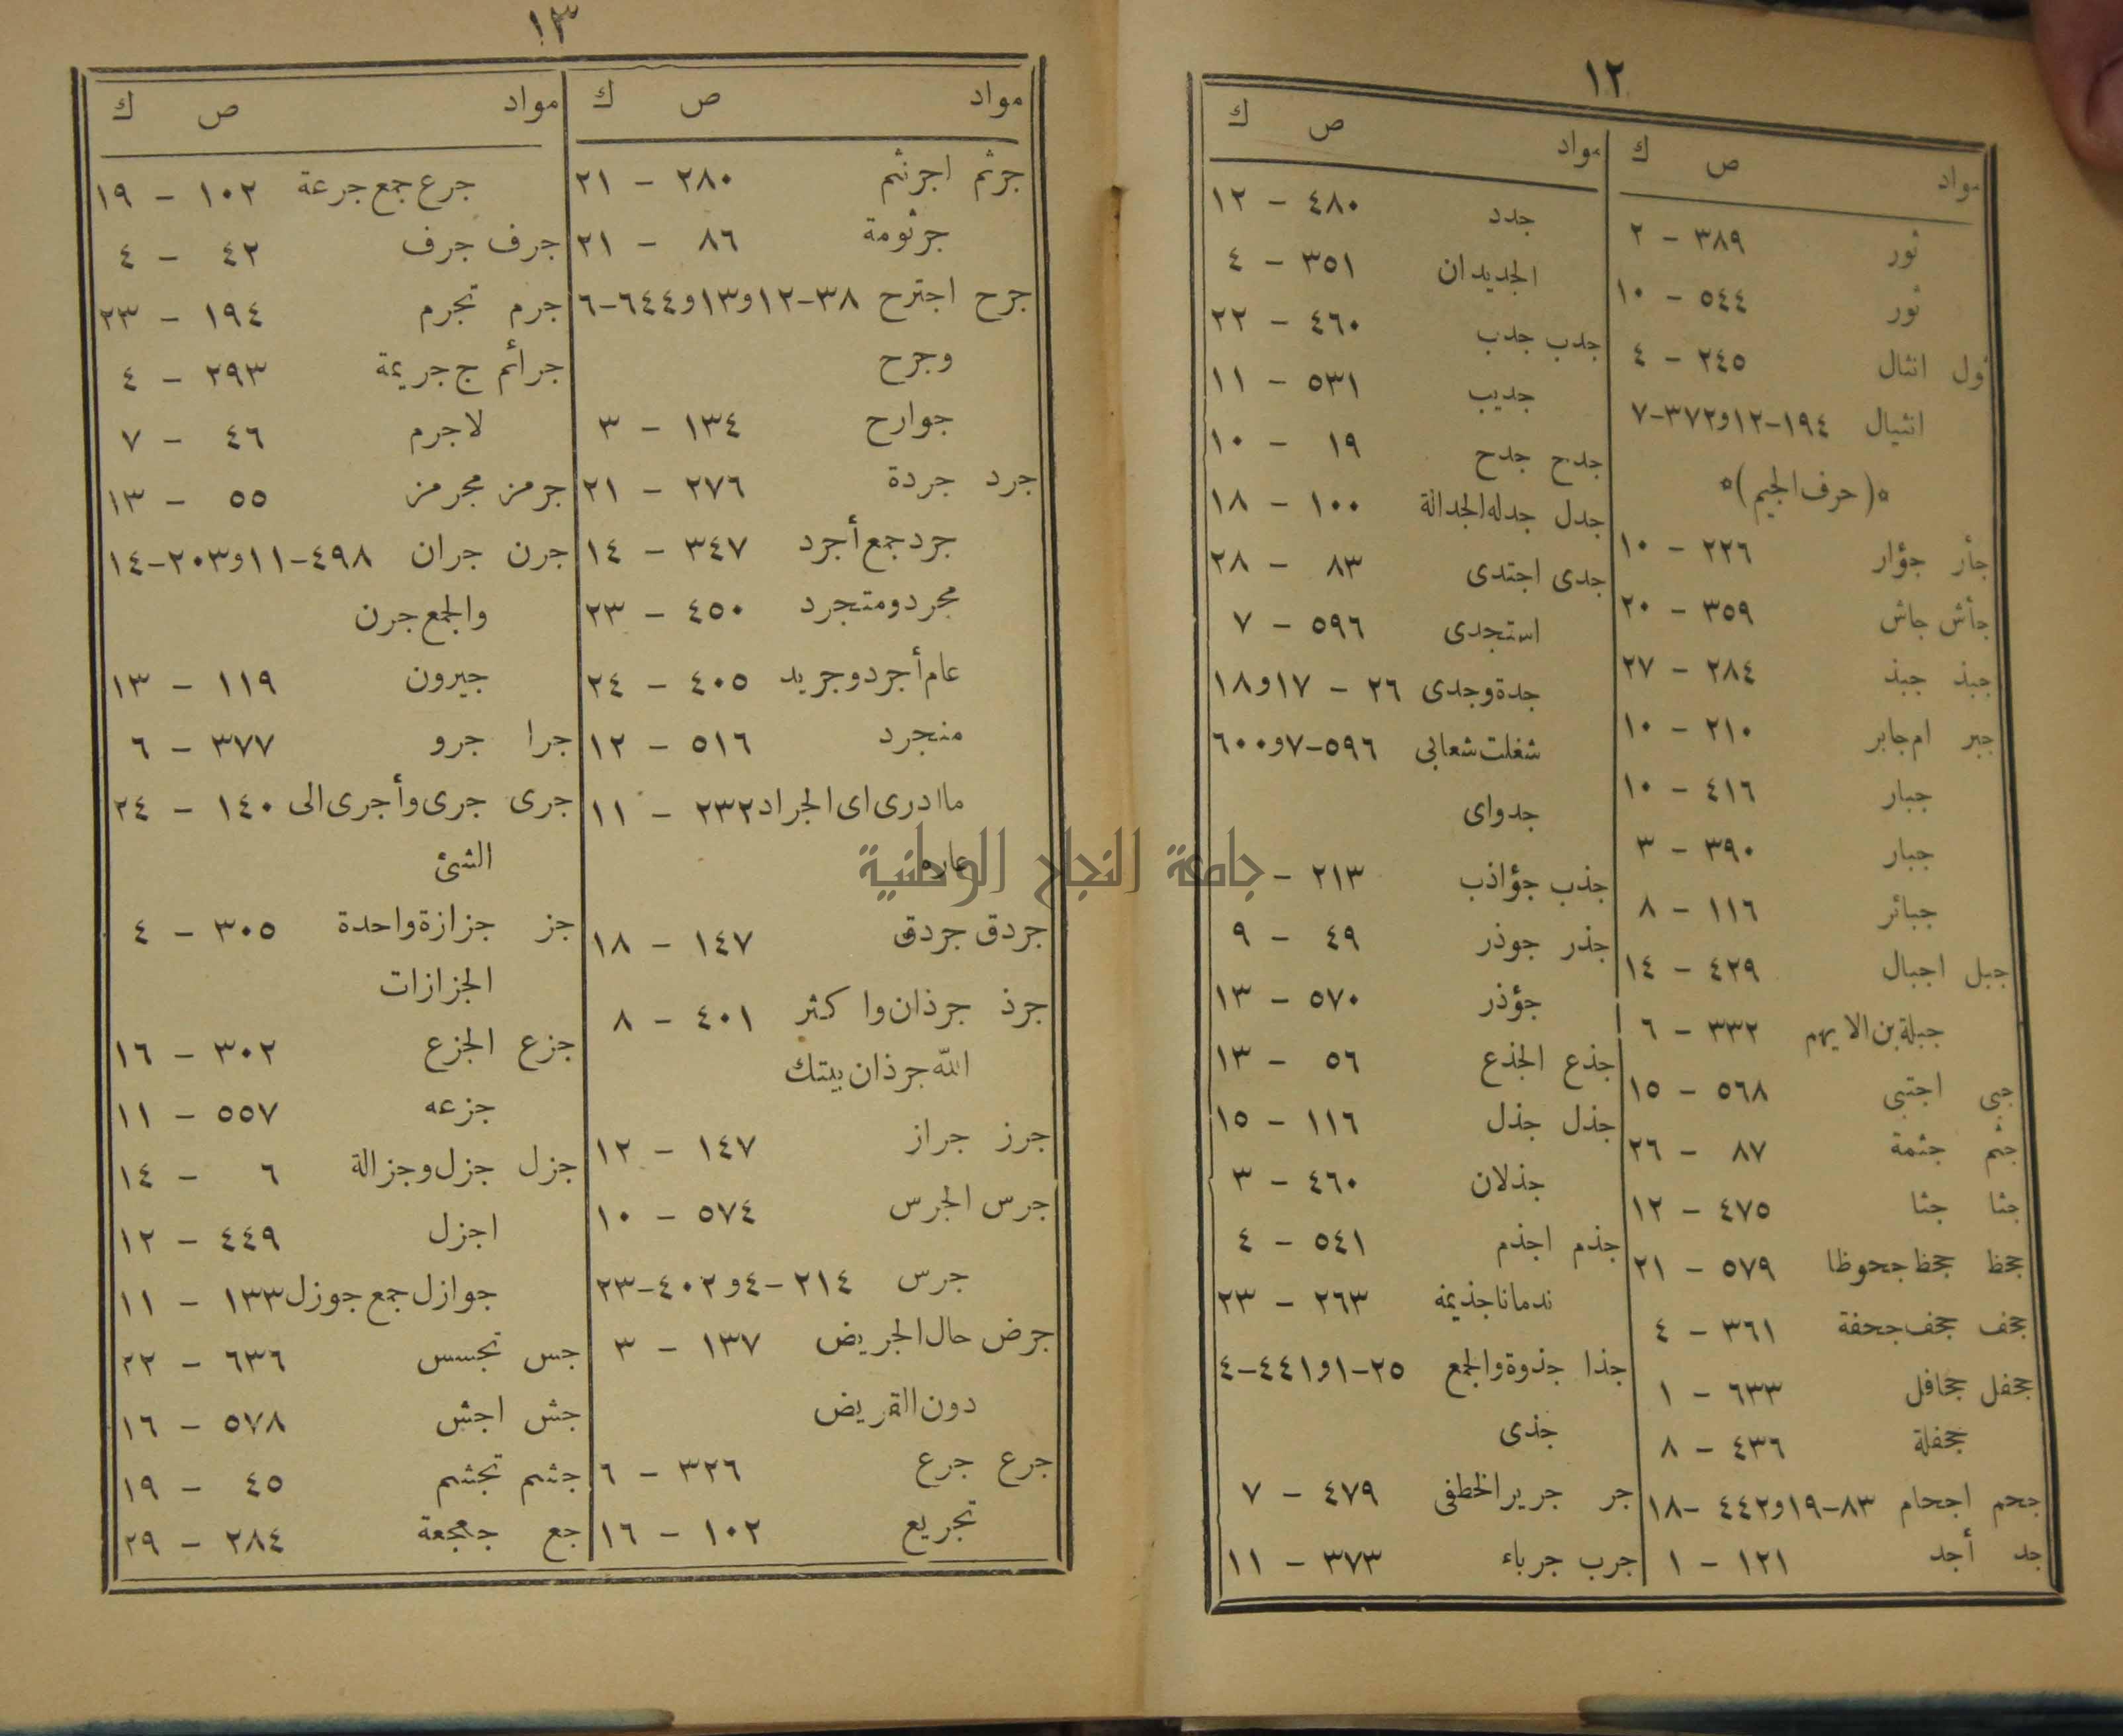 ١٢
مواد ص ك
ثور ٣٨٩ - ٢
ثور ٥٤٤ - ١٠
ثول انثال ٢٤٥ - ٤
انثيال ١٩٤-١٢و٣٧٢-٧
(حرف الجيم)
جأر جؤار ٢٢٦ - ١٠
جأش جاش ٣٥٩ - ٢٠
جبذ جبذ ٢٨٤ - ٢٧
جبر ام جابر ٢١٠ - ١٠
جبار ٤١٦ - ١٠
جبار ٣٩٠ - ٣
جبائر ١١٦ - ٨
جبل اجبال ٤٢٩ - ١٤
جبلة بن الايهم ٣٣٢ - ٦
جبى اجتبى ٥٦٨ - ١٥
جثم جثمة ٨٧ - ٢٦
جثا جثا ٤٧٥ - ١٢
جحظ جحظ جحوظا ٥٧٩ - ٢١
جحف جحف جحفة ٣٦١ - ٤
جحفل جحافل ٦٣٣ - ١
جحفلة ٤٣٦ - ٨
جحم اجحام ٨٣-١٩و٤٤٢ -١٨
جد أجد ١٢١ - ١
مواد ص ك
جدد ٤٨٠ - ١٢
الجديدان ٣٥١ - ٤
جدب جدب ٤٦٠ - ٢٢
جديب ٥٣١ - ١١
جدح جدح ١٩ - ١٠
جدل جدله الجدالة ١٠٠ - ١٨
جدى اجتدى ٨٣ - ٢٨
استجدى ٥٩٦ - ٧
جدة وجدى ٢٦ - ١٧و١٨
شغلت شعابى ٥٩٦-٧و٦٠٠
جدواى
جذب جؤاذب ٢١٣ -
جذر جوذر ٤٩ - ٩
جؤذر ٥٧٠ - ١٣
جذع الجذع ٥٦ - ١٣
جذل جذل ١١٦ - ١٥
جذلان ٤٦٠ - ٣
جذم اجذم ٥٤١ - ٤
ندمانا جذيمة ٢٦٣ - ٢٣
جذا جذوة والجمع ٢٥-١و٤٤١-٤
جذى
جر جرير الخطفى ٤٧٩ - ٧
جرب جرباء ٣٧٣ - ١١
١٣
مواد ص ك
جرثم اجرنثم ٢٨٠ - ٢١
جرثومة ٨٦ - ٢١
جرح اجترح ٣٨-١٢و١٣و٦٤٤-٦
وجرح
جوارح ١٣٤ - ٣
جرد جردة ٢٧٦ - ٢١
جرد جمع أجرد ٣٤٧ - ١٤
مجرد ومتجرد ٤٥٠ - ٢٣
عام أجرد وجريد ٤٠٥ - ٢٤
منجرد ٥١٦ - ١٢
ما ادرى اى الجراد ٢٣٢ - ١١
عاره
جردق جردق ١٤٧ - ١٨
جرذ جرذان وا كثر ٤٠١ - ٨
الله جرذان بيتك
جرز جراز ١٤٧ - ١٢
جرس الجرس ٥٧٤ - ١٠
جرس ٢١٤ -٤و٤٠٢-٢٣
جرض حال الجريض ١٣٧ - ٣
دون القريض
جرع جرع ٣٢٦ - ٦
تجريع ١٠٢ - ١٦
مواد ص ك
جرع جمع جرعة ١٠٢ - ١٩
جرف جرف ٤٢ - ٤
جرم تجرم ١٩٤ - ٢٣
جرائم ج جريمة ٢٩٣ - ٤
لاجرم ٤٦ - ٧
جرمز مجرمز ٥٥ - ١٣
جرن جران ٤٩٨-١١و٢٠٣-١٤
والجمع جرن
جيرون ١١٩ - ١٣
جرا جرو ٣٧٧ - ٦
جرى جرى وأجرى الى ١٤٠ - ٢٤
الشئ
جز جزازة واحدة ٣٠٥ - ٤
الجزازات
جزع الجزع ٣٠٢ - ١٦
جزعه ٥٥٧ - ١١
جزل جزل وجزالة ٦ - ١٤
اجزل ٤٤٩ - ١٢
جوازل جمع جوزل ١٣٣ - ١١
جس تجسس ٦٣٦ - ٢٢
جش اجش ٥٧٨ - ١٦
جشم تجشم ٤٥ - ١٩
جع جعجعة ٢٨٤ - ٢٩
جامعة النجاح الوطنية